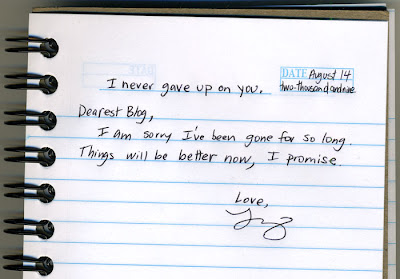 DATE August 14
two-thousand and nine
I never gave up on you.
Dearest Blog,
I am sorry I've been gone for so long.
Things will be better now, I promise.
Love,